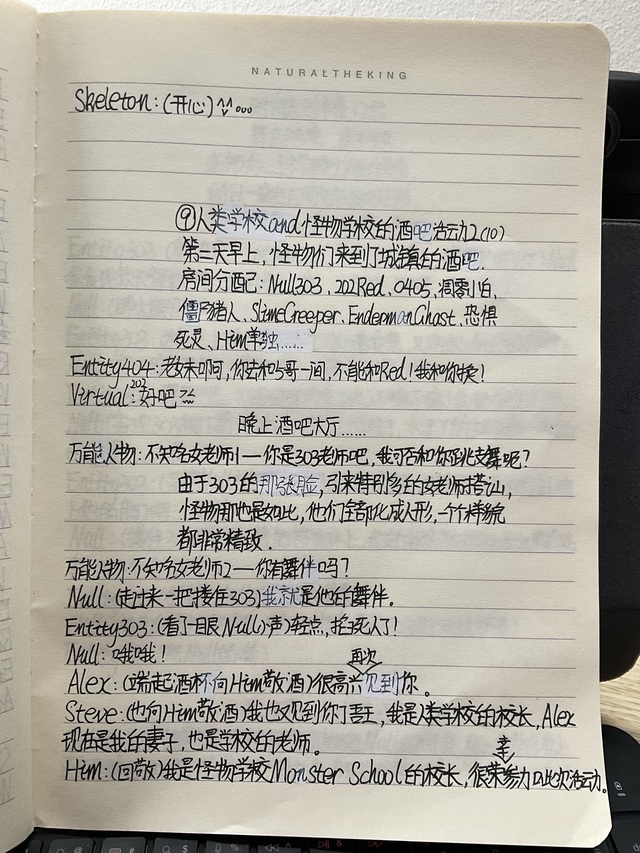 NATURALTHEKING
Skeleton:(开心)^^...
⑨人类学校and怪物学校的酒吧活动2(10)
第二天早上,怪物们来到了城镇的酒吧.
房间分配:Null303、202Red、0405、凋零小白、
僵尸猪人、SlimeCreeper、EndermanGhast、恐惧
死灵、Him单独……
Entity404:老妹啊,你去和5哥一间,不能和Red!我和你换!
Virtual202:好吧
晚上酒吧大厅……
万能人物:不知名女老师1—你是303老师吧,我可否和你跳支舞呢?
由于303的那张脸,引来特别多的女老师搭讪,
怪物那也是如此,他们全部化成人形,一个个样貌
都非常精致.
万能人物:不知名女老师2—你有舞伴吗?
Null:(走过来一把搂住303)我就是他的舞伴。
Entity303:(看了一眼Null)(小声)轻点,掐死人了!
Null:哦哦!
Alex:(端起酒杯向Him敬酒)很高兴再次见到你。
Steve:(也向Him敬酒)我也又见到你了吾王,我是人类学校的校长,Alex
现在是我的妻子,也是学校的老师。
Him:(回敬)我是怪物学校Monster School的校长,很荣幸参加此次活动。